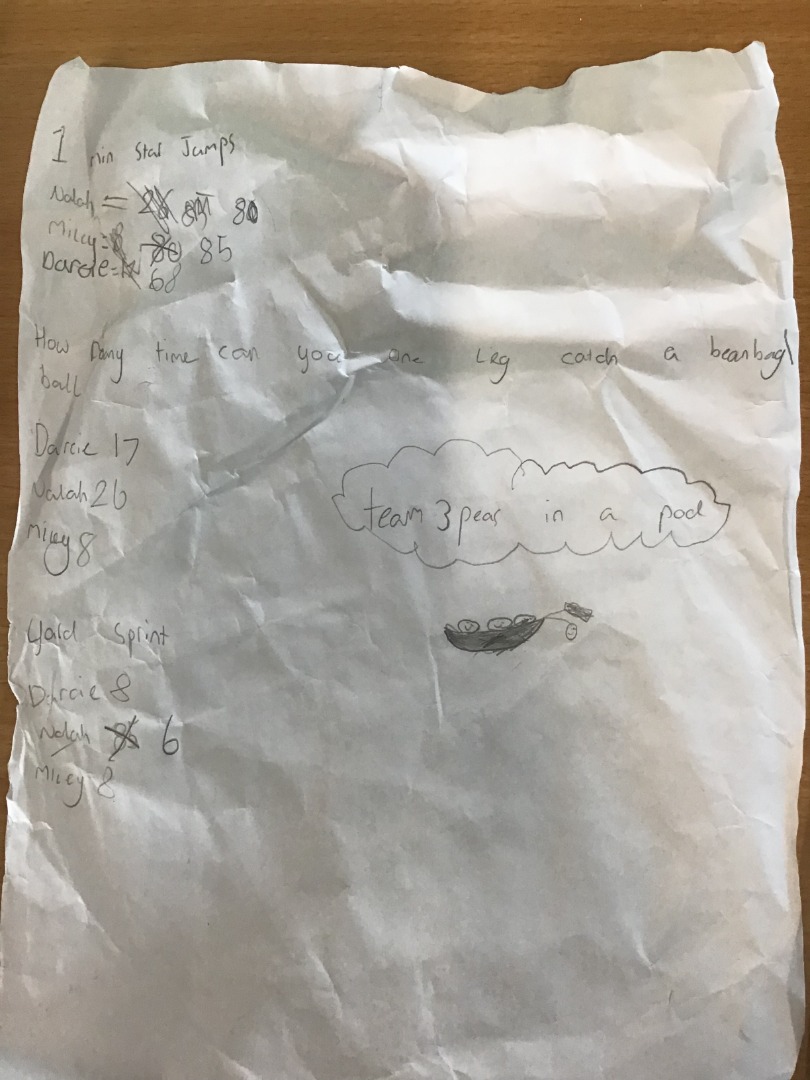 1 min Star Jumps
Nalah = 80
Miley = 85
Darcie = 68
How many time can you one Leg catch a beanbag\
ball
Darcie 17
Nalah 26
Miley 8
team 3 peas in a pod
Yard Sprint
Darcie 8
Nalah 6
Miley 8